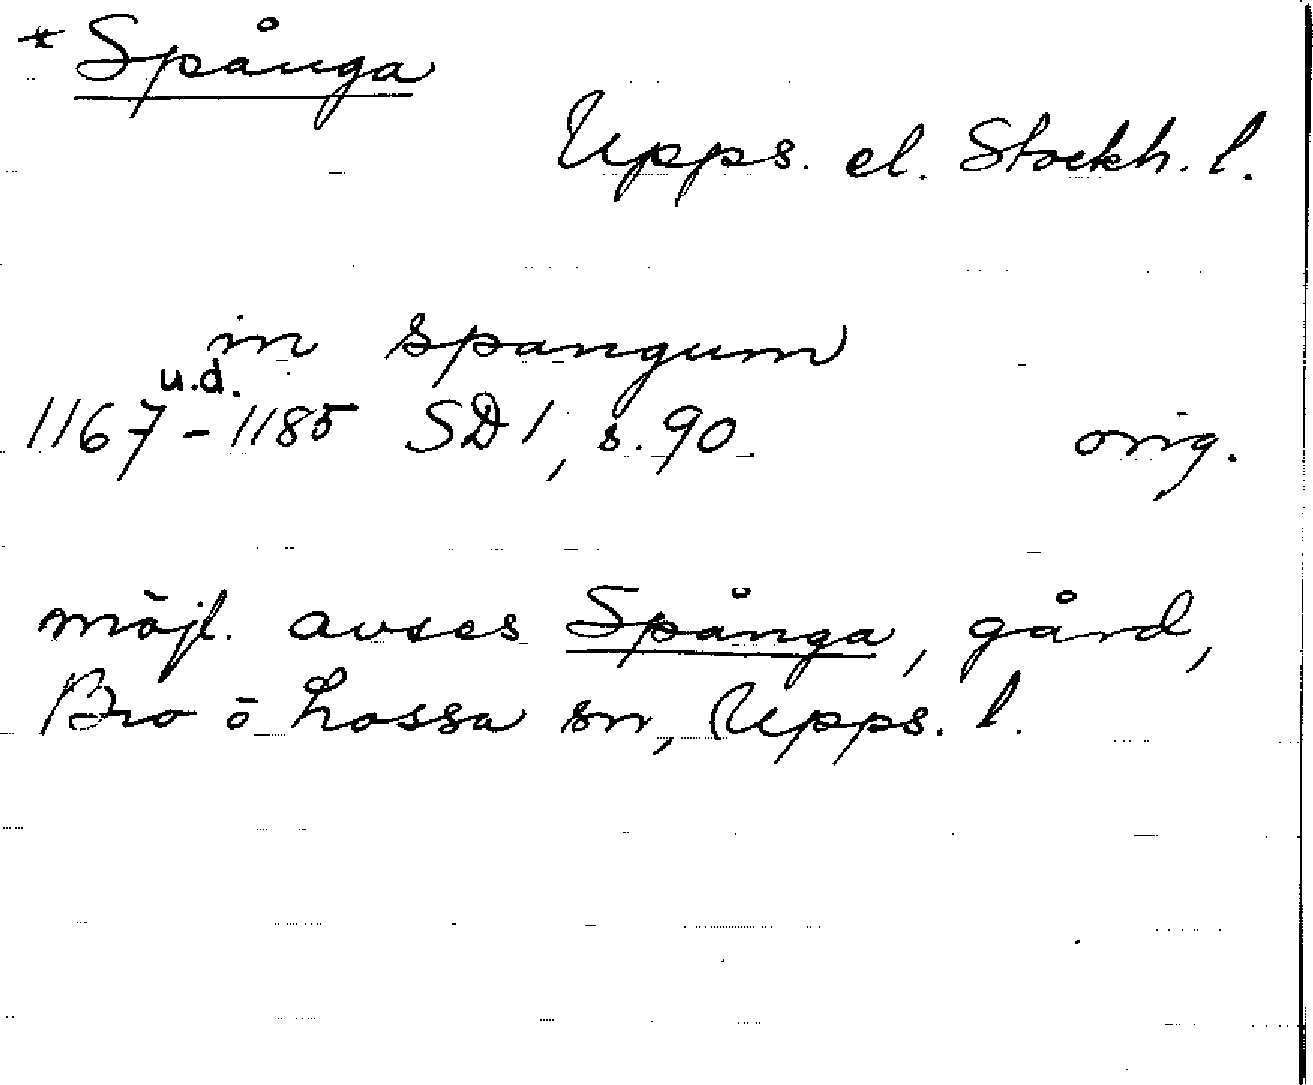 * Spånga
Upps. el. Stockh. l.
in spangum
u.d.
1167 - 1185 SD 1, s. 90. orig.
möjl. avses Spånga, gård,
Bro o Lossa sn, Upps. l.